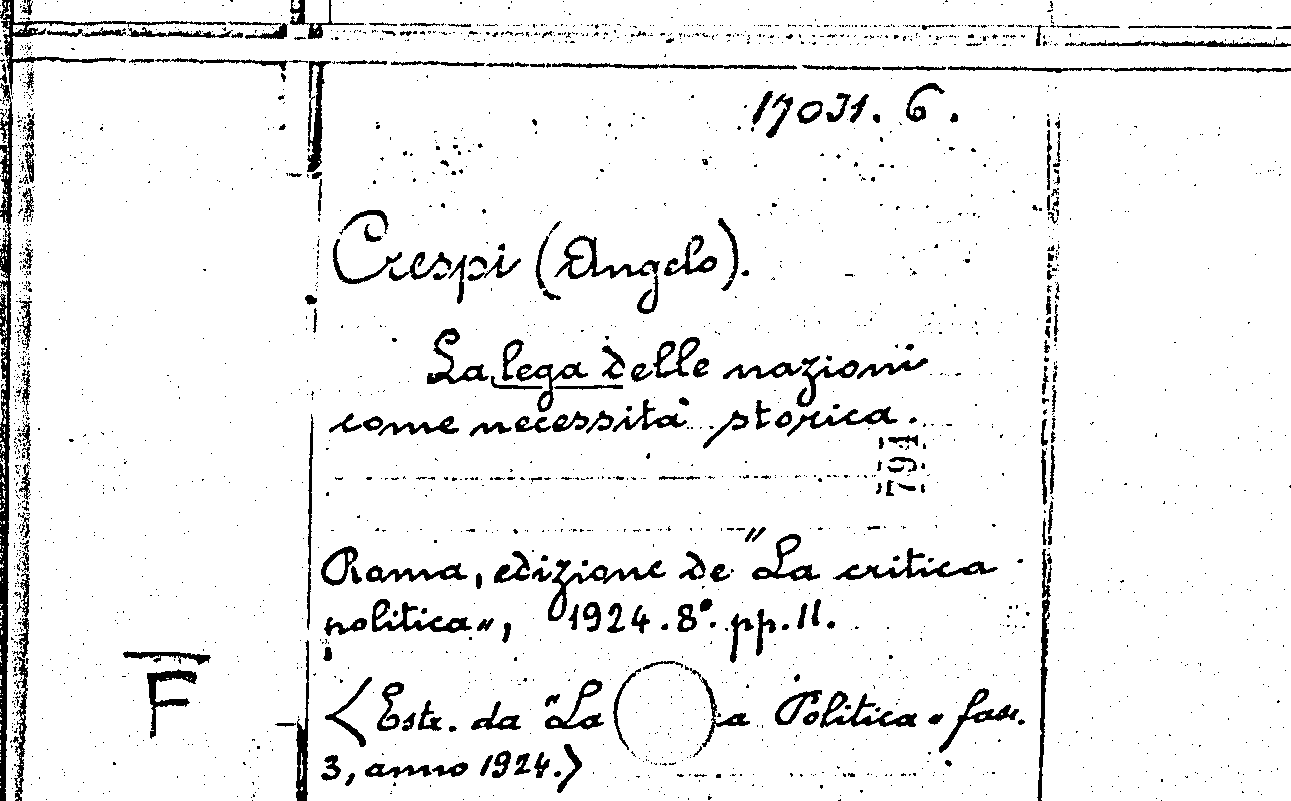 17031. 6.
Crespi (Angelo).
La lega delle nazioni
come necessità storica.
791
Roma, edizione de "La critica
politica", 1924. 8°. pp. 11.
F
<Estr. da "La a Politica" fasc.
3, anno 1924.>